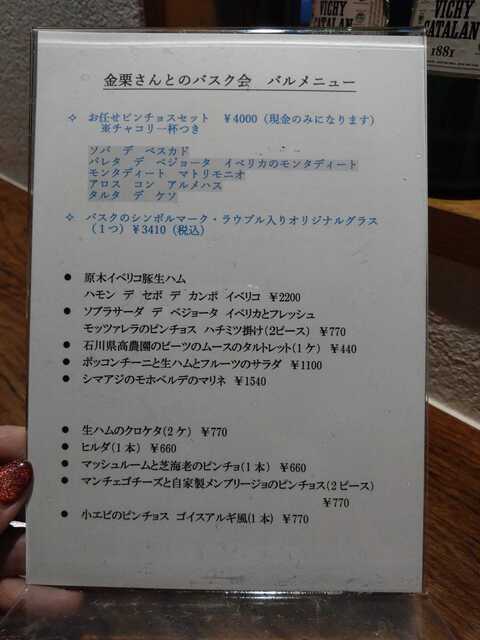 VICHY
CATALAN
1881
VICHY
CATALAN
1881
金栗さんとのバスク会 バルメニュー
✧ お任せピンチョスセット ￥4000（現金のみになります）
※チャコリ一杯つき
ソパ デ ペスカド
パレタ デ ベジョータ イベリカのモンタディート
モンタディート マトリモニオ
アロス コン アルメハス
タルタ デ ケソ
✧ バスクのシンボルマーク・ラウブル入りオリジナルグラス
（１つ）￥3410（税込）
● 原木イベリコ豚生ハム
ハモン デ セボ デ カンポ イベリコ ￥2200
● ソブラサーダ デ ベジョータ イベリカとフレッシュ
モッツァレラのピンチョス ハチミツ掛け(２ピース) ￥770
● 石川県高農園のビーツのムースのタルトレット(１ケ) ￥440
● ボッコンチーニと生ハムとフルーツのサラダ ￥1100
● シマアジのモホベルデのマリネ ￥1540
● 生ハムのクロケタ(２ケ) ￥770
● ヒルダ(１本) ￥660
● マッシュルームと芝海老のピンチョ(１本) ￥660
● マンチェゴチーズと自家製メンブリージョのピンチョス(２ピース)
￥770
● 小エビのピンチョス ゴイスアルギ風(１本) ￥770